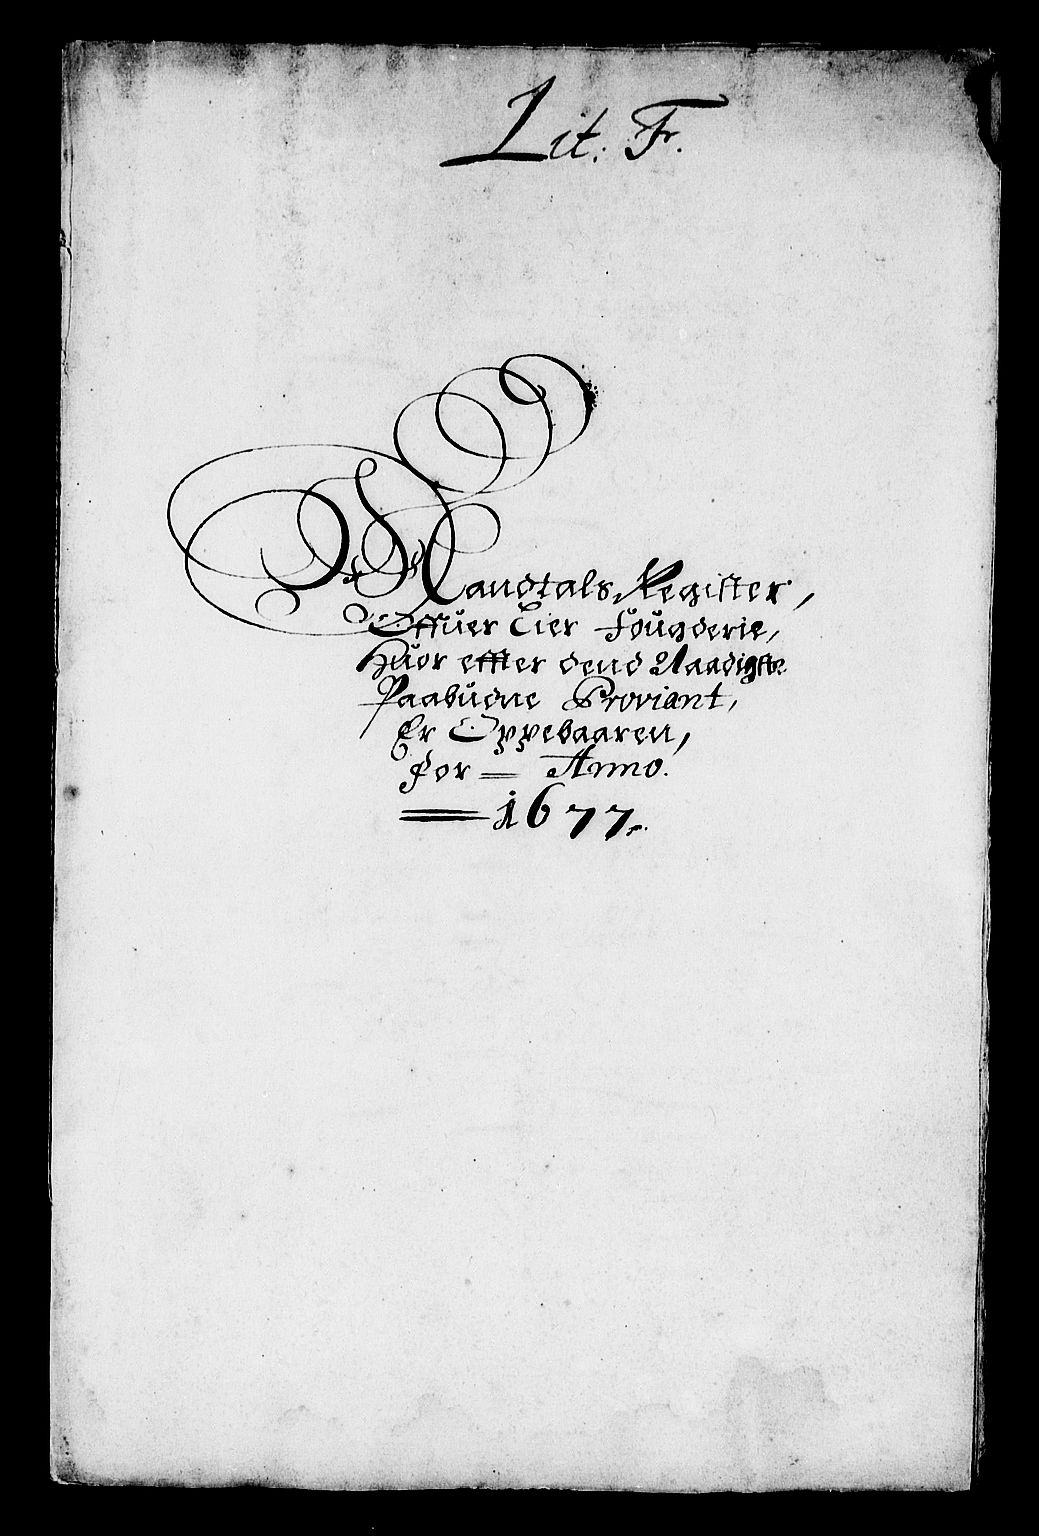 Lit: Fr.
Mandtals Register,
Offuer Lier Fougderie,
Huor effter dend Naadigste
Paabudne Proviant,
Er Oppebaaren,
For — Anno.
1677.